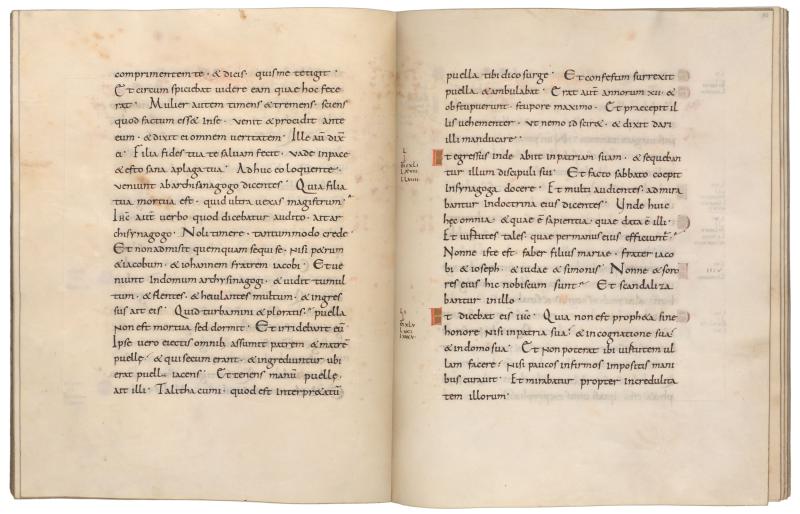 comprimentem te · & dicis · quis me tetigit ·
Et circum spiciebat videre eam quae hoc fece
rat · Mulier autem timens & tremens · sciens
quod factum ess& in se · venit & procidit ante
eum · & dixit ei omnem veritatem · Ille aū dix̄
ei · Filia fides tua te salvam fecit · vade in pace
& esto sana a plaga tua · Adhuc eo loquente ·
veniunt ab archisinagogo dicentes · Quia filia
tua mortua est · quid ultra vexas magistrum ·
Ihc̄ aut̄ verbo quod dicebatur audito · ait ar
chisynagogo · Noli timere · tantummodo crede ·
Et non admisit quemquam sequi se · nisi p&rum
& iacobum · & iohannem fratrem iacobi · Et ve
niunt In domum archysinagogi · & vidit tumul
tum · & flentes · & heiulantes multum · & ingres
sus ait eis · Quid turbamini & ploratis · puella
non est mortua sed dormit · Et irridebant eū
Ipse vero eiectis omnib; assumit patrem & matrē
puellę · & qui secum erant · & ingrediuntur ubi
erat puella iacens · Et tenens manū puellę ·
ait illi · Talitha cumi · quod est interpr&atū
puella tibi dico surge · Et confestim surrexit
puella & ambulabat · Erat aut̄ annorum xii · &
obstupuerunt · stupore maximo · Et praecepit il
lis vehementer · ut nemo id scir& · & dixit dari
illi manducare ·
Et egressus inde abiit in patriam suam · & sequeban
tur illum discipuli sui · Et facto sabbato coepit
In synagoga docere · Et multi audientes · admira
bantur in doctrina eius dicentes · Unde huic
hęc omnia · & quae ē sapientia · quae data ē illi ·
Et virtutes tales · quae per manus eius efficiunt̄ ·
Nonne iste est faber filius mariae · frater iaco
bi & ioseph · & iudae & simonis · Nonne & soro
res eius hic nobiscum sunt · Et scandaliza
bantur in illo ·
Et dicebat eis ihc̄ · Quia non est proph&a sine
honore nisi in patria sua · & in cognatione sua ·
& in domo sua · Et non poterat ibi virtutem ul
lam facere · nisi paucos infirmos impositis mani
bus curavit · Et mirabatur propter incredulita
tem illorum ·